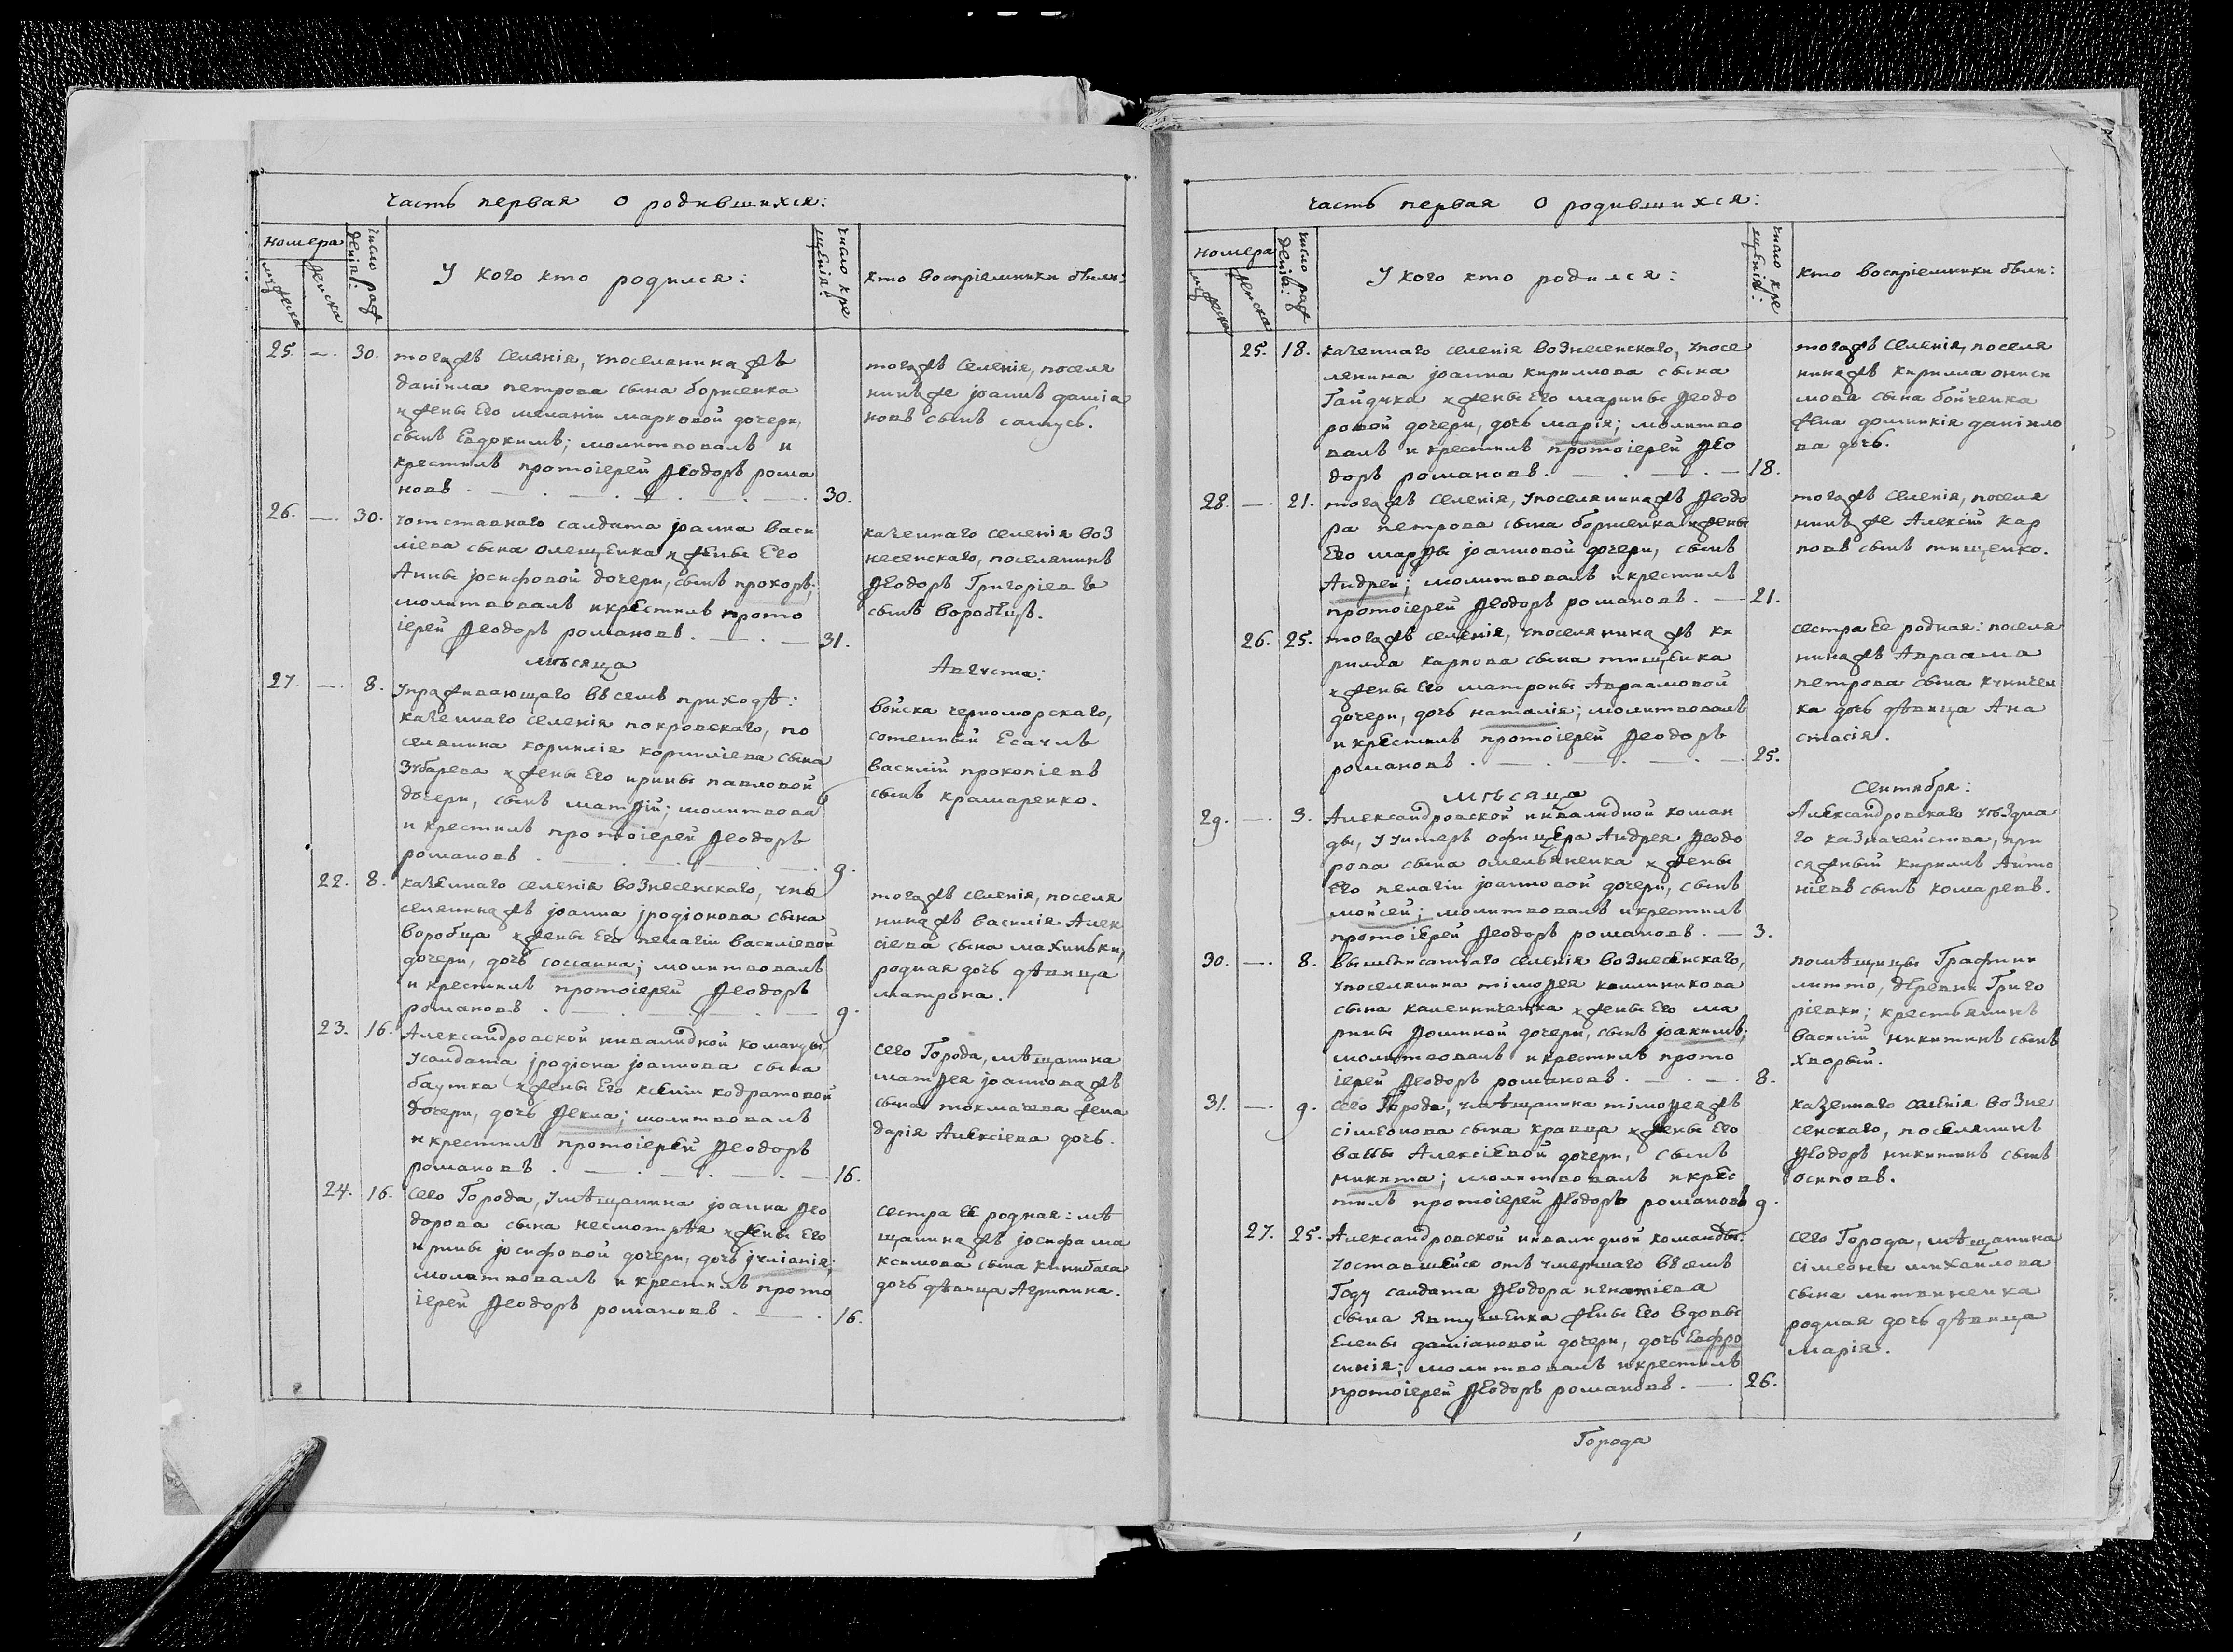 часть первая о родившихся:
номера
мужеска
женска
число рож
денія:
У кого кто родился:
число кре
щенія:
кто воспріемники были:
25. —. 30. тогажъ селенія, упоселянинажъ
даніила петрова сына борисенка
ижены Его меланіи марковой дочери,
сынъ Евдокимъ; молитвовалъ и
крестилъ протоіерей Ѳеодоръ рома
новъ. 30.
тогажъ селенія, поселя
нинъже іоаннъ даміа
новъ сынъ самусь.
26. —. 30. уотставнаго салдата іоанна васи
ліева сына олещенка ижены Его
Анны іосифовой дочери, сынъ прохоръ;
молитвовалъ икрестилъ прото
іерей Ѳеодоръ романовъ. 31.
казеннаго селенія воз
несенскаго, поселянинъ
Ѳеодоръ Григоріевъ
сынъ воробецъ.
мѣсяца Августа:
27. —. 8. упроживающаго въсемъ приходѣ:
казеннаго селенія покровскаго, по
селянина корнилія корниліева сына
Зубарева ижены Его ирины павловой
дочери, сынъ матѳій; молитвова
и крестилъ протоіерей Ѳеодоръ
романовъ. 9.
войска черноморскаго,
сотенный Есаулъ
василій прокопіевъ
сынъ крамаренко.
22. 8. казеннаго селенія вознесенскаго, упо
селянинажъ іоанна іродіонова сына
воробца ижены Его пелагіи василіевой
дочери, дочь соссанна; молитвовалъ
и крестилъ протоіерей Ѳеодоръ
романовъ. 9.
тогажъ селенія, поселя
нинажъ василія Алек
сіева сына махиньки,
родная дочь дѣвица
матрона.
23. 16. Александровской инвалидной команды,
усалдата іродіона іоаннова сына
баутка ижены Его ксеніи кодратовой
дочери, дочь Ѳекла; молитвовалъ
и крестилъ протоіерей Ѳеодоръ
романовъ. 16.
сего Города, мѣщанина
матѳея іоанноважъ
сына токмачева жена
дарія Алексіева дочь.
24. 16. сего Города, умѣщанина іоанна Ѳео
дорова сына несмотрѣя ижены Его
ирины іосифовой дочери, дочь іуліанія;
молитвовалъ и крестилъ прото
іерей Ѳеодоръ романовъ. 16.
сестра ЕЕ родная: мѣ
щанинажъ іосифа ма
ксимова сына кинибаса
дочь дѣвица Агрипина.
часть первая о родившихся:
номера
мужеска
женска
число рож
денія:
У кого кто родился:
число кре
щенія:
кто воспріемники были:
25. 18. казеннаго селенія вознесенскаго, упосе
лянина іоанна кириллова сына
Гайдука ижены Его марины Ѳеодо
ровой дочери, дочь марія; молитво
валъ и крестилъ протоіерей Ѳео
доръ романовъ. 18.
тогажъ селенія, поселя
нинажъ кирилла ониси
мова сына бойченка
жена домникія даніило
ва дочь.
28. —. 21. тогажъ селенія, упоселянинажъ Ѳеодо
ра петрова сына борисенка ижены
Его марѳы іоанновой дочери, сынъ
Андрей; молитвовалъ икрестилъ
протоіерей Ѳеодоръ романовъ. 21.
тогажъ селенія, поселя
нинъже Алексій кар
повъ сынъ тищенко.
26. 25. тогажъ селенія, упоселянинажъ ки
рилла карпова сына тищенка
ижены Его матроны Авраамовой
дочери, дочь наталія; молитвовалъ
и крестилъ протоіерей Ѳеодоръ
романовъ. 25.
сестра Ее родная: поселя
нинажъ Авраама
петрова сына кучичен
ка дочь дѣвица Ана
стасія.
мѣсяца Сентября:
29. —. 3. Александровской инвалидной коман
ды, уунтеръ офицера Андрея Ѳеодо
рова сына омельяненка ижены
Его пелагіи іоанновой дочери, сынъ
мойсей; молитвовалъ икрестилъ
протоіерей Ѳеодоръ романовъ. 3.
Александровскаго уѣздна
го казначейства, при
сяжный кириллъ Анто
ніевъ сынъ комаревъ.
30. —. 8. вышеписаннаго селенія вознесенскаго,
упоселянина тімоѳея каллиникова
сына калениченка ижены Его ма
рины Ѳоминой дочери, сынъ іоакимъ;
молитвовалъ икрестилъ прото
іерей Ѳеодоръ романовъ. 8.
помѣщицы Графини
литто, деревни Григо
ріевки; крестьянинъ
василій никитинъ сынъ
хворый.
31. —. 9. сего Города, умѣщанина тімоѳеяжъ
сімеонова сына кравца ижены Его
вассы Алексіевой дочери, сынъ
никита; молитвовалъ икрес
тилъ протоіерей Ѳеодоръ романовъ 9.
казеннаго селенія возне
сенскаго, поселянинъ
Ѳеодоръ никитинъ сынъ
осиповъ.
27. 25. Александровской инвалидной команды:
уоставшейся отъ умершаго въсемъ
Году салдата Ѳеодора игнатіева
сына Явтушенка жены Его вдовы
Елены даміановой дочери, дочь Евфро
синія; молитвовалъ икрестилъ
протоіерей Ѳеодоръ романовъ. 26.
сего Города, мѣщанина
сімеона михаилова
сына литвиненка
родная дочь дѣвица
марія.
Города